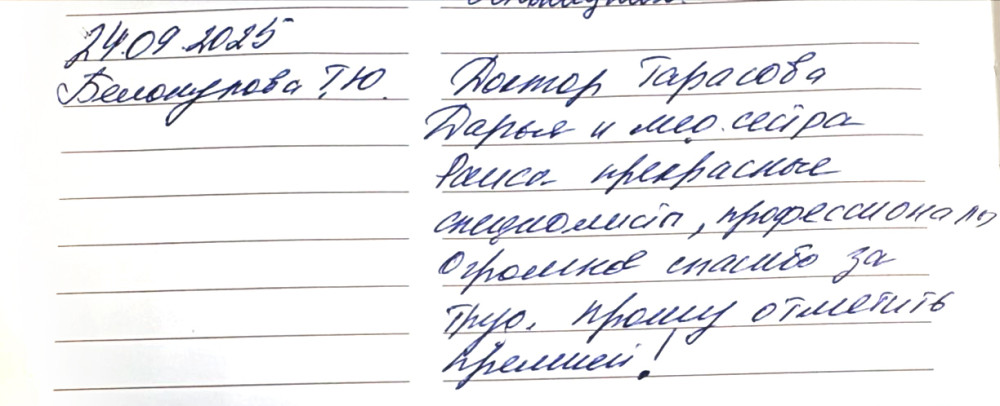 24.09.2025
Белокурова Т.Ю.
Доктор Тарасова
Дарья и мед. сестра
Раиса прекрасные
специалисты, профессионалы
Огромное спасибо за
труд. Прошу отметить
премией!